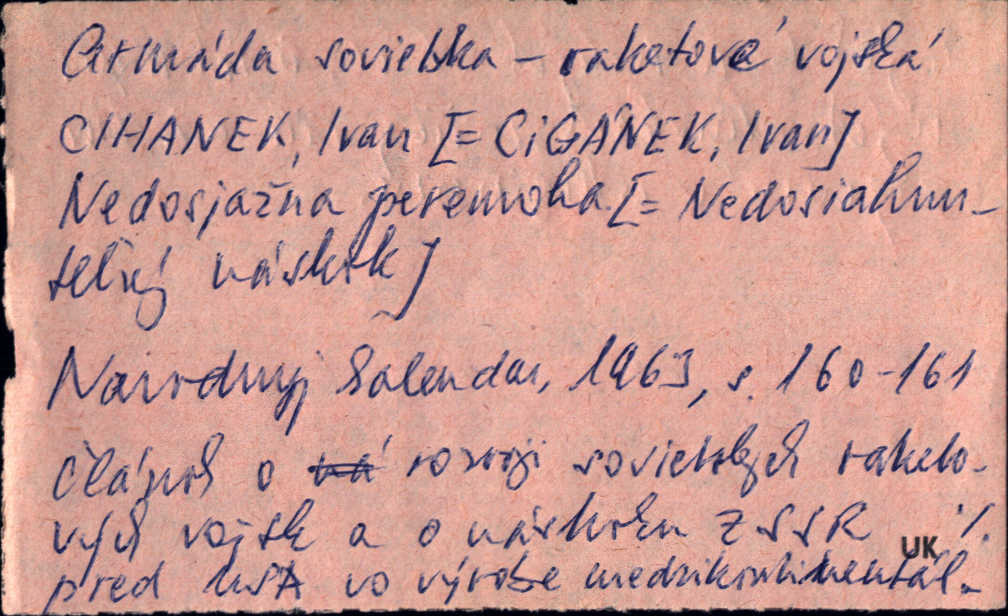 Armáda sovietska - raketové vojská
CIHANEK, Ivan [= CIGÁNEK, Ivan]
Nedosjažna peremoha [= Nedosiahnu-
teľný náskok]
Narodnyj kalendar, 1963, s. 160-161
Článok o ná rozvoji sovietskych raketo-
vých vojsk a o náskoku ZSSR ·/.
pred USA vo výrobe medzikontinentál-
UK